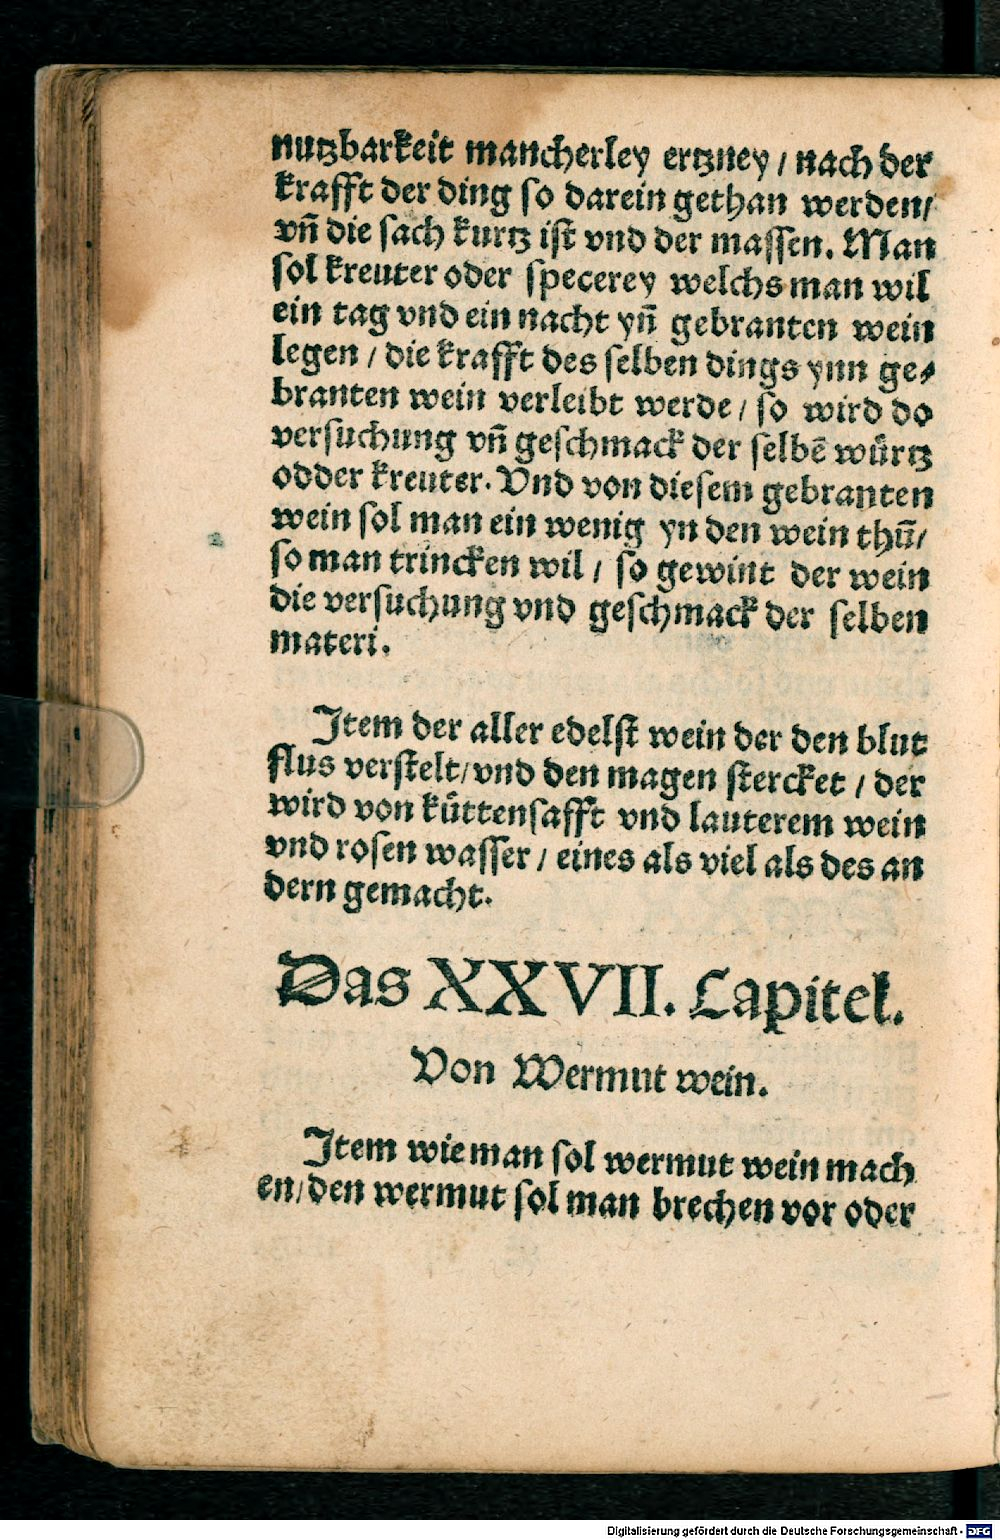 nutzbarkeit mancherley ertzney / nach der
krafft der ding so darein gethan werden/
vñ die sach kurtz ist vnd der massen. Man
sol kreuter oder specerey welchs man wil
ein tag vnd ein nacht yñ gebranten wein
legen / die krafft des selben dings ynn ge⸗
branten wein verleibt werde / so wird do
versuchung vñ geschmack der selbē wuͤrtz
odder kreuter. Vnd von diesem gebranten
wein sol man ein wenig yn den wein thū/
so man trincken wil / so gewint der wein
die versuchung vnd geschmack der selben
materi.
Item der aller edelst wein der den blut
flus verstelt/vnd den magen stercket / der
wird von kuͤttensafft vnd lauterem wein
vnd rosen wasser / eines als viel als des an
dern gemacht.
Das XXVII. Capitel.
Von Wermut wein.
Item wie man sol wermut wein mach
en/den wermut sol man brechen vor oder
Digitalisierung gefördert durch die Deutsche Forschungsgemeinschaft - DFG